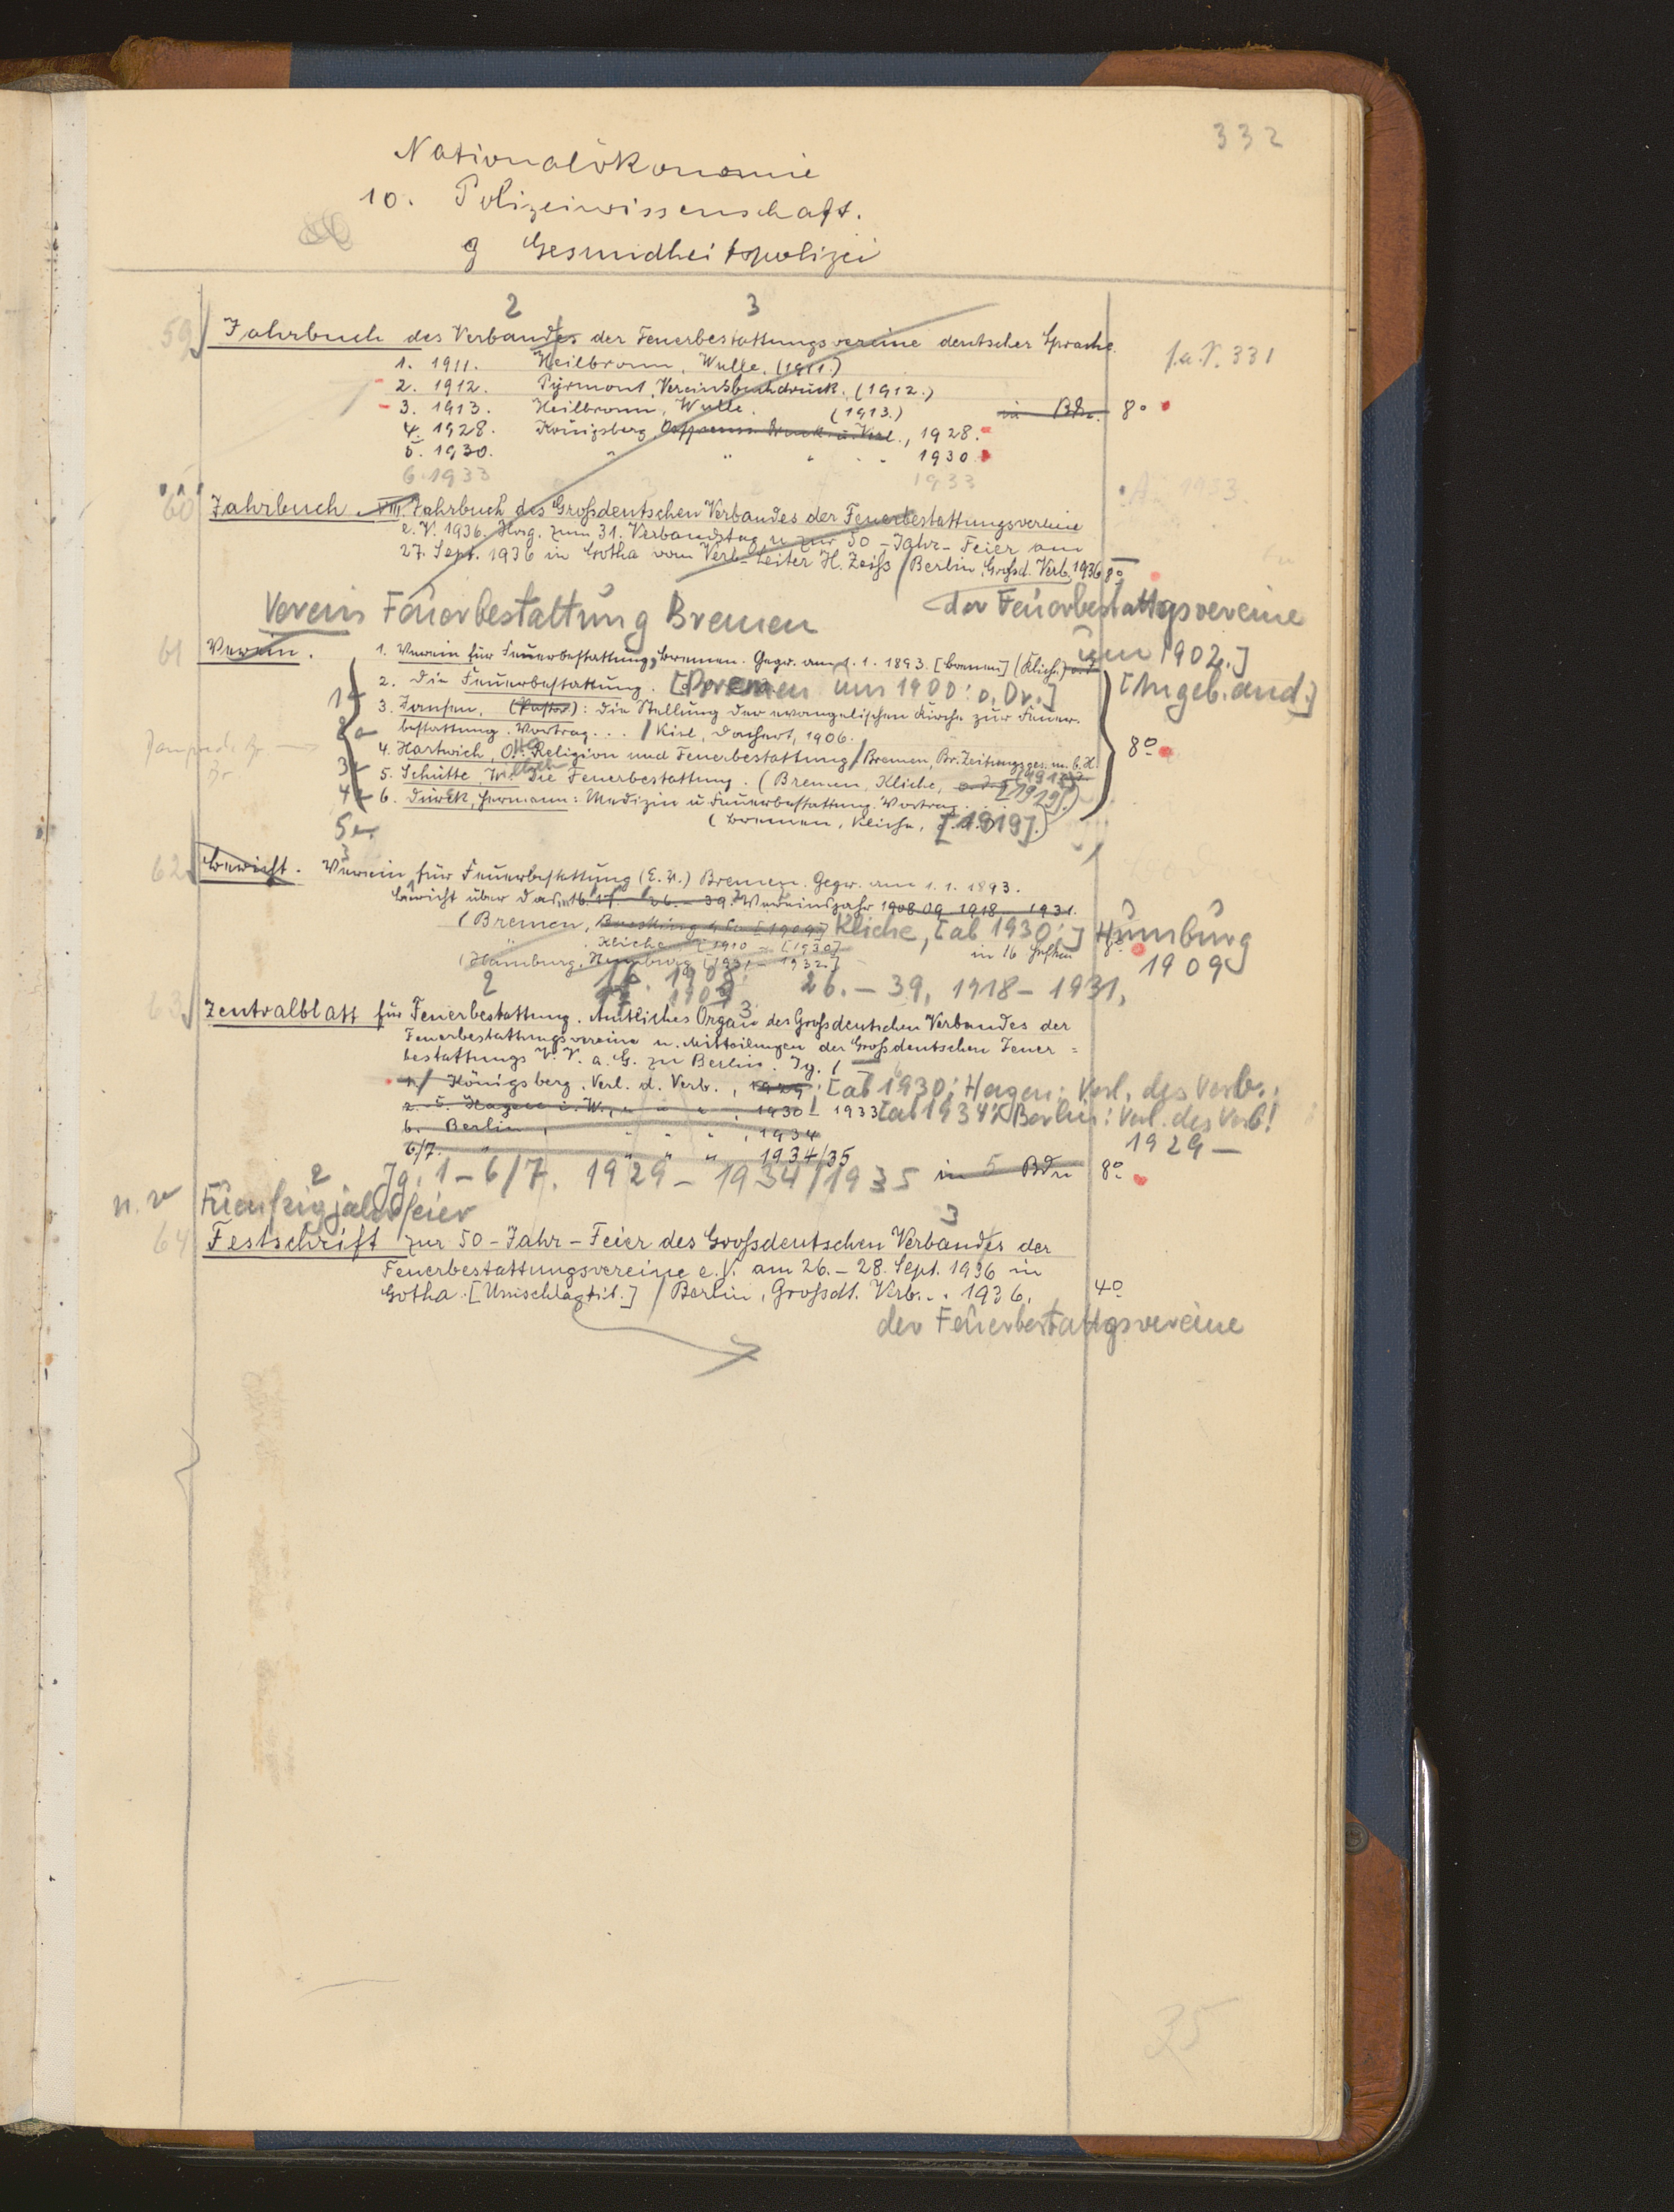 332
Nationalökonomie
10. Polizeiwissenschaft.
g Gesundheitspolizei
2 3
59 Jahrbuch des Verbandes der Feuerbestattungsvereine deutscher Sprache
s.a.S. 331
1. 1911. Heilbronn, Wulle. (1911.)
2. 1912. Pyrmont, Vereinsbuchdruck. (1912.)
3. 1913. Heilbronn, Wulle. (1913.) in Bdn. 8°
4. 1928. Königsberg, Ostpreuss. Druck. u. Verl., 1928.
5. 1930. " " " " 1930
6. 1933 1933
60 Jahrbuch. VIII. Jahrbuch des Großdeutschen Verbandes der Feuerbestattungsvereine
e. V. 1936. Hrsg. zum 31. Verbandstag u. zur 50-Jahr-Feier am
27. Sept. 1936 in Gotha vom Verb.-Leiter H. Zeiss / Berlin, Grossd. Verb. 1936 8°
der Feuerbestattgsvereine
Verein Feuerbestattung Bremen
um 1902.]
61 Verein. 1. Verein für Feuerbestattung, Bremen. Gegr. am 1. 1. 1893. [Bremen] (Kliche.)
2. Die Feuerbestattung. [Bremen um 1900: o. Dr.] [Angeb. and.]
3. Jansen, (Pastor): Die Stellung der evangelischen Kirche zur Feuer-
bestattung. Vortrag... / Kiel, Donhart, 1906.
4. Hartwich, Otto: Religion und Feuerbestattung / Bremen, Br. Zeitungsges. m. b. H. 8°
5. Schütte, Wilhelm: Die Feuerbestattung. (Bremen, Kliche,
6. Dürck, Hermann: Medizin u. Feuerbestattung. Vortrag. [1919].)
(Bremen, Kliche, [1919].)
3
62 Bericht. Verein für Feuerbestattung (E. V.) Bremen. Gegr. am 1. 1. 1893.
Bericht über das 16. 17. 26. - 39. Vereinsjahr 1908. 09. 1918 - 1931.
(Bremen, Kliche, [ab 1930:] Humburg
Kliche [1910 - [1930] in 16 Heften 8°
(Hamburg, Humburg [1931 - 1932.] 1909
2 16. 1908. 26. - 39, 1918 - 1931,
17. 1909. 3
63 Zentralblatt für Feuerbestattung. Amtliches Organ des Großdeutschen Verbandes der
Feuerbestattungsvereine u. Mitteilungen der Großdeutschen Feuer=
bestattungs V. V. a. G. zu Berlin. Jg. 1 -
1./ Königsberg, Verl. d. Verb., 1929; [ab 1930: Hagen: Verl. des Verb.;
2.-5. Hagen i. W., " " " , 1930 - 1933 [ab 1934: Berlin: Verl. des Verb!
6. Berlin, " " " , 1934
1929 -
6/7. " " " " 1934/35
Jg. 1 - 6/7. 1929 - 1934/1935 in 5 Bdn 8°
2
Fuenfzigjahrfeier
3
64 Festschrift zur 50-Jahr-Feier des Großdeutschen Verbandes der
Feuerbestattungsvereine e. V. am 26. - 28. Sept. 1936 in
Gotha. [Umschlagtit.] / Berlin, Großdt. Verb... 1936. 4°
der Feuerbestattgsvereine
25